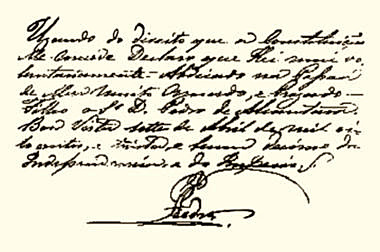 Uzando do direito que a Constituição
Me Concede Declaro que Hei mui vo
luntariamente Abdicado na Pessoa
de Meu muito Amado, e Prezado
Filho o Sr. D. Pedro de Alcantara.
Boa Vista sette de Abril de mil oi
to centos, e trinta, e hum, decimo da
Independencia e do Imperio.
Pedro